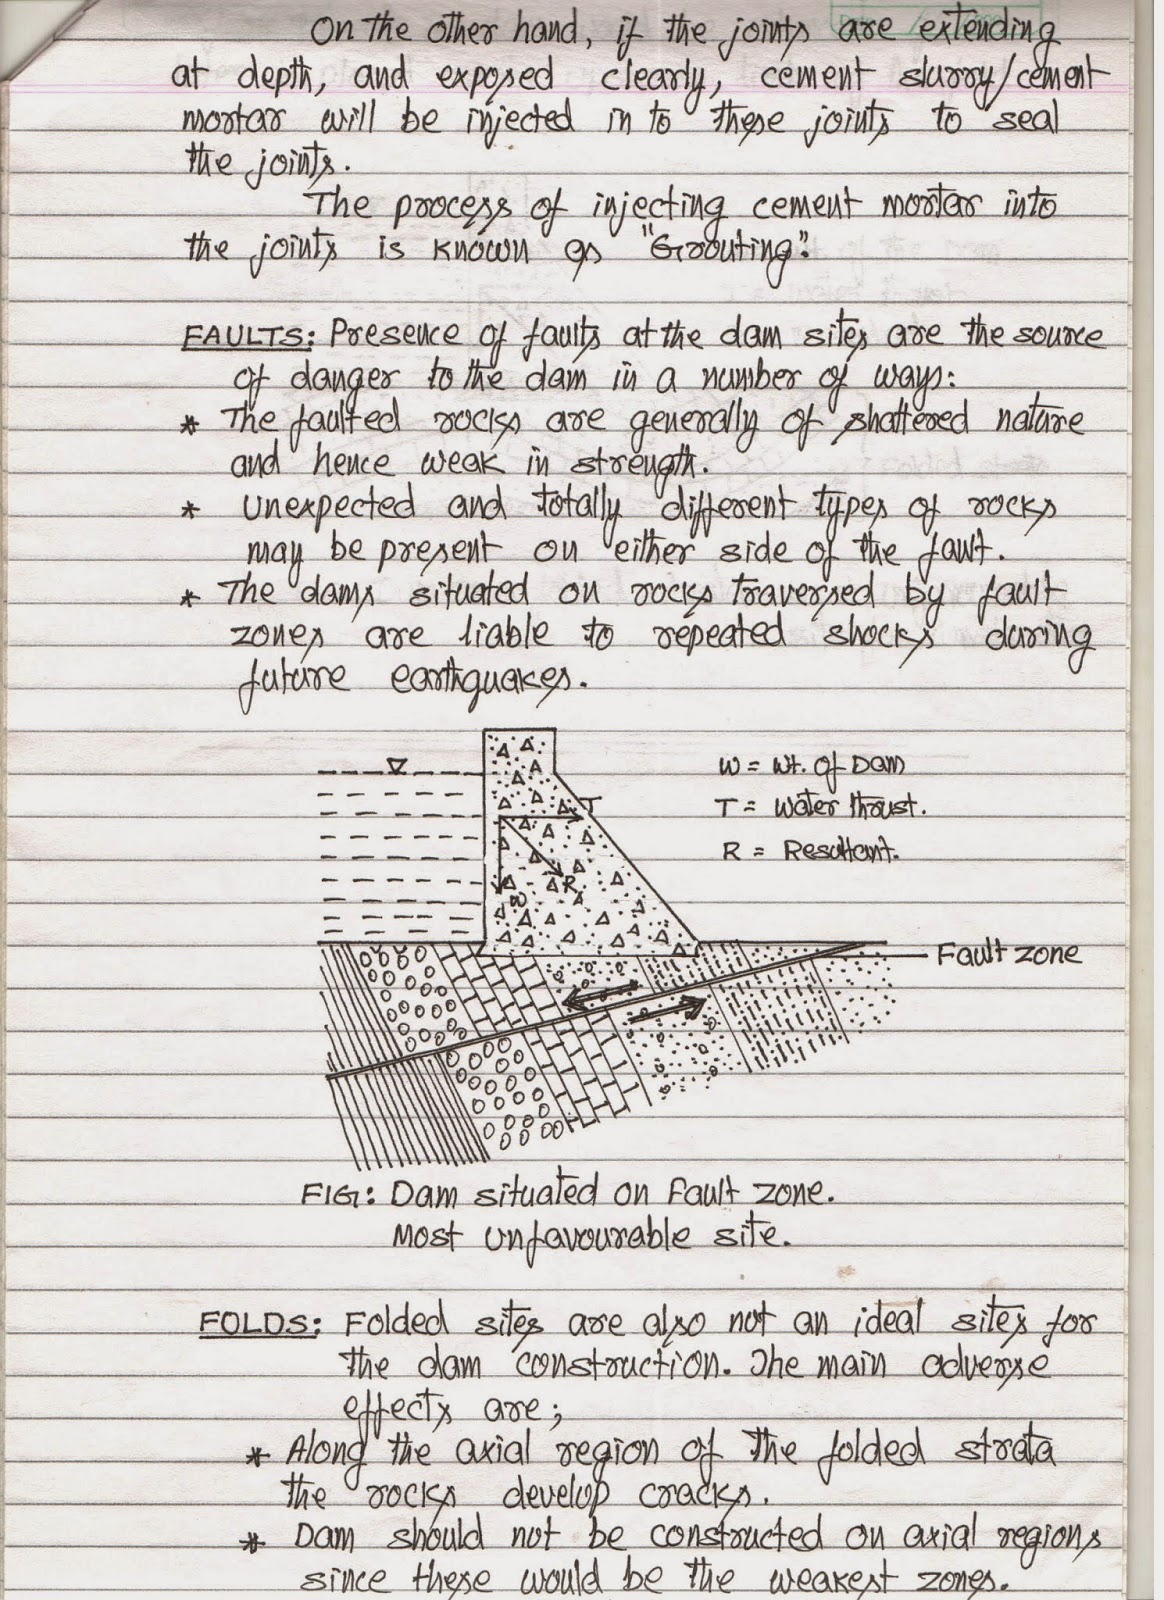 On the other hand, if the joints are extending
at depth, and exposed clearly, cement slurry/cement
mortar will be injected in to these joints to seal
the joints.
The process of injecting cement mortar into
the joints is known as "Grouting".
FAULTS: Presence of faults at the dam sites are the source
of danger to the dam in a number of ways:
* The faulted rocks are generally of shattered nature
and hence weak in strength.
* Unexpected and totally different types of rocks
may be present on either side of the fault.
* The dams situated on rocks traversed by fault
zones are liable to repeated shocks during
future earthquakes.
W = Wt. of Dam
T = Water thrust.
R = Resultant.
T
R
W
Fault zone
FIG: Dam situated on Fault zone.
Most unfavourable site.
FOLDS: Folded sites are also not an ideal sites for
the dam construction. The main adverse
effects are;
* Along the axial region of the folded strata
the rocks develop cracks.
* Dam should not be constructed on axial regions
since these would be the weakest zones.